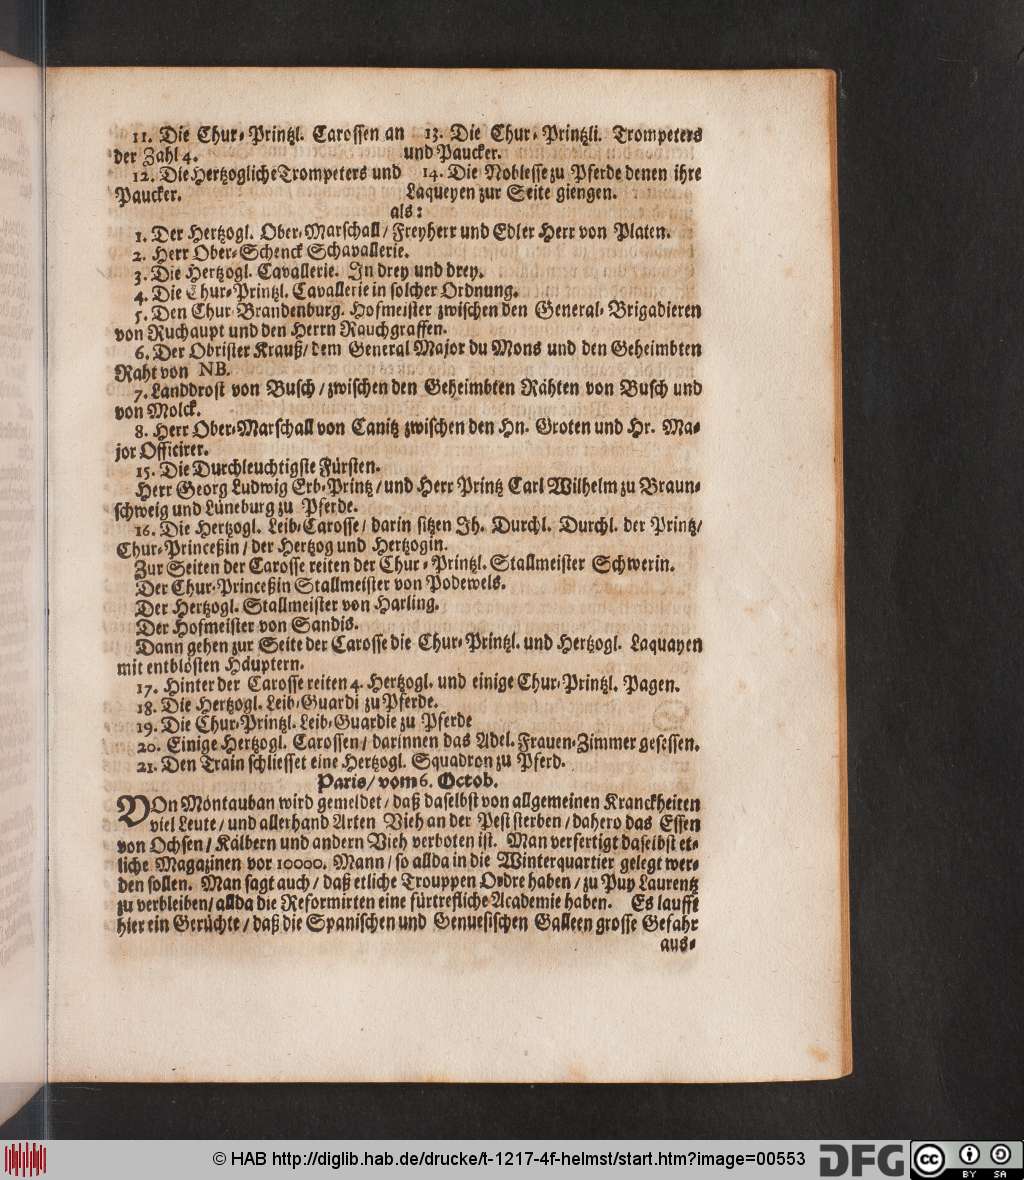 11. Die Chur-Printzl. Carossen an
der Zahl 4.
12. Die Hertzogliche Trompeters und
Paucker.
13. Die Chur-Printzli. Trompeters
und Paucker.
14. Die Noblesse zu Pferde denen ihre
Laqueyen zur Seite giengen.
als:
1. Der Hertzogl. Ober-Marschall/ Freyherr und Edler Herr von Platen.
2. Herr Ober-Schenck Schavallerie.
3. Die Hertzogl. Cavallerie. In drey und drey.
4. Die Chur-Printzl. Cavallerie in solcher Ordnung.
5. Den Chur-Brandenburg. Hofmeister zwischen den General-Brigadieren
von Ruchaupt und den Herrn Rauchgraffen.
6. Der Obrister Krauß/ dem General Major du Mons und den Geheimbten
Raht von NB.
7. Landdrost von Busch/ zwischen den Geheimbten Rähten von Busch und
von Molck.
8. Herr Ober-Marschall von Canitz zwischen den Hn. Groten und Hr. Ma-
jor Officirer.
15. Die Durchleuchtigste Fürsten.
Herr Georg Ludwig Erb-Printz/ und Herr Printz Carl Wilhelm zu Braun-
schweig und Lüneburg zu Pferde.
16. Die Hertzogl. Leib-Carosse/ darin sitzen Ih. Durchl. Durchl. der Printz/
Chur-Princeßin/ der Hertzog und Hertzogin.
Zur Seiten der Carosse reiten der Chur-Printzl. Stallmeister Schwerin.
Der Chur-Princeßin Stallmeister von Podewels.
Der Hertzogl. Stallmeister von Harling.
Der Hofmeister von Sandis.
Dann gehen zur Seite der Carosse die Chur-Printzl. und Hertzogl. Laquayen
mit entblösten Häuptern.
17. Hinter der Carosse reiten 4. Hertzogl. und einige Chur-Printzl. Pagen.
18. Die Hertzogl. Leib-Guardi zu Pferde.
19. Die Chur-Printzl. Leib-Guardie zu Pferde
20. Einige Hertzogl. Carossen/ darinnen das Adel. Frauen-Zimmer gesessen.
21. Den Train schliesset eine Hertzogl. Squadron zu Pferd.
Paris/ vom 6. Octob.
VOn Montauban wird gemeldet/ daß daselbst von allgemeinen Kranckheiten
viel Leute/ und allerhand Arten Vieh an der Pest sterben/ dahero das Essen
von Ochsen/ Kälbern und andern Vieh verboten ist. Man verfertigt daselbst et-
liche Magazinen vor 10000. Mann/ so allda in die Winterquartier gelegt wer-
den sollen. Man sagt auch/ daß etliche Trouppen Ordre haben/ zu Puy Laurentz
zu verbleiben/ allda die Reformirten eine fürtrefliche Academie haben. Es laufft
hier ein Gerüchte/ daß die Spanischen und Genuesischen Galleen grosse Gefahr
aus-
© HAB http://diglib.hab.de/drucke/t-1217-4f-helmst/start.htm?image=00553
DFG
cc BY SA